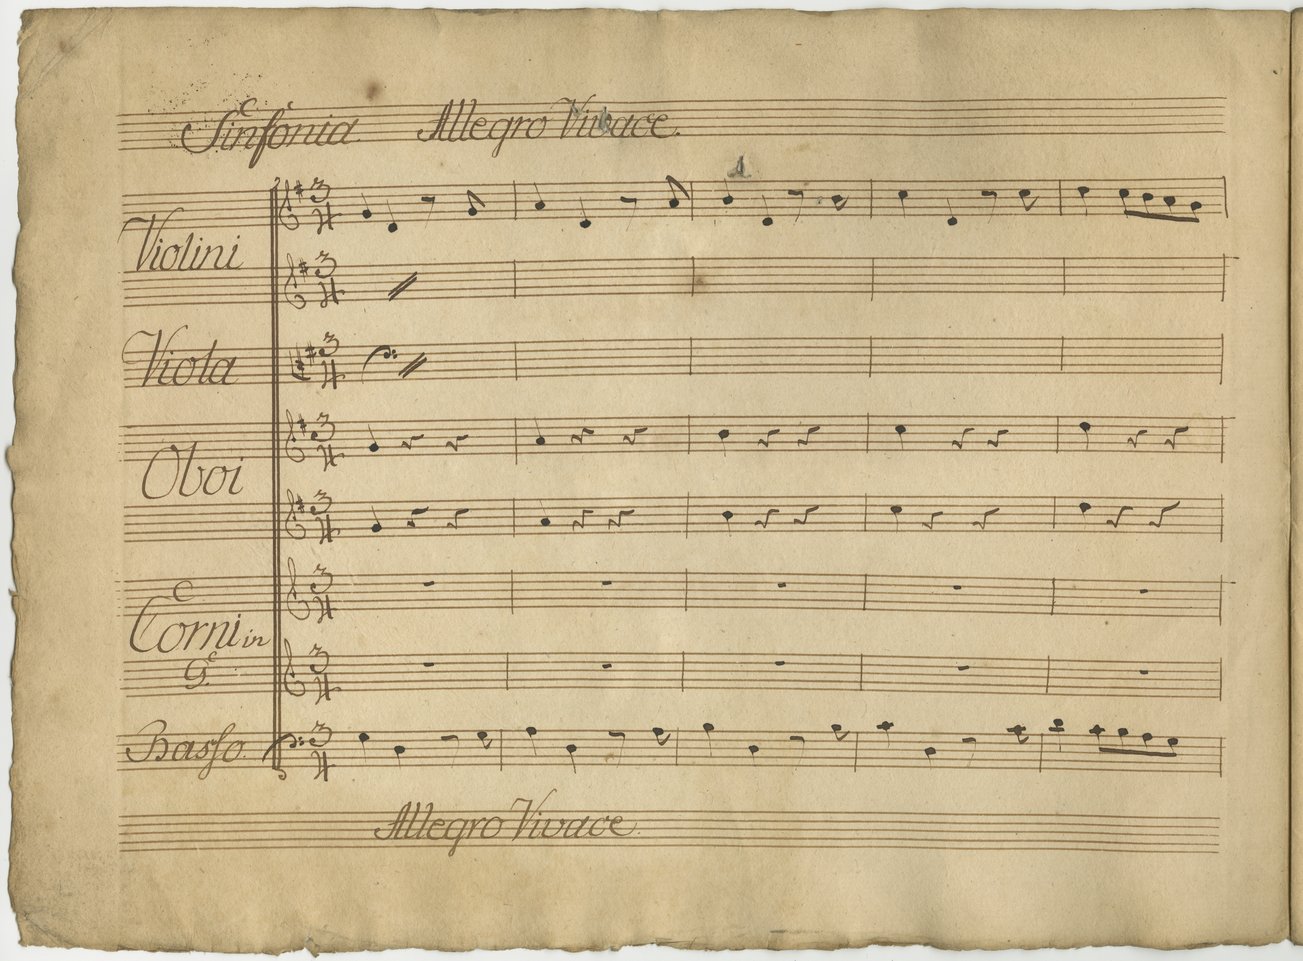 Sinfonia Allegro Vivace.
Violini
Viola
Oboi
Corni in
G.
Basso.
Allegro Vivace.